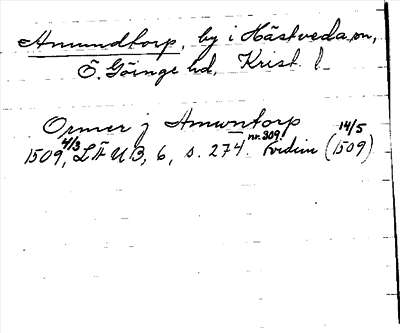 Amundtorp, by i Hästveda sn,
Ö. Göinge hd, Krist. l.
Ormer j Amwntorp
1509 4/3, LÄUB, 6, s. 274 nr. 309. Vidim (14/5 1509)